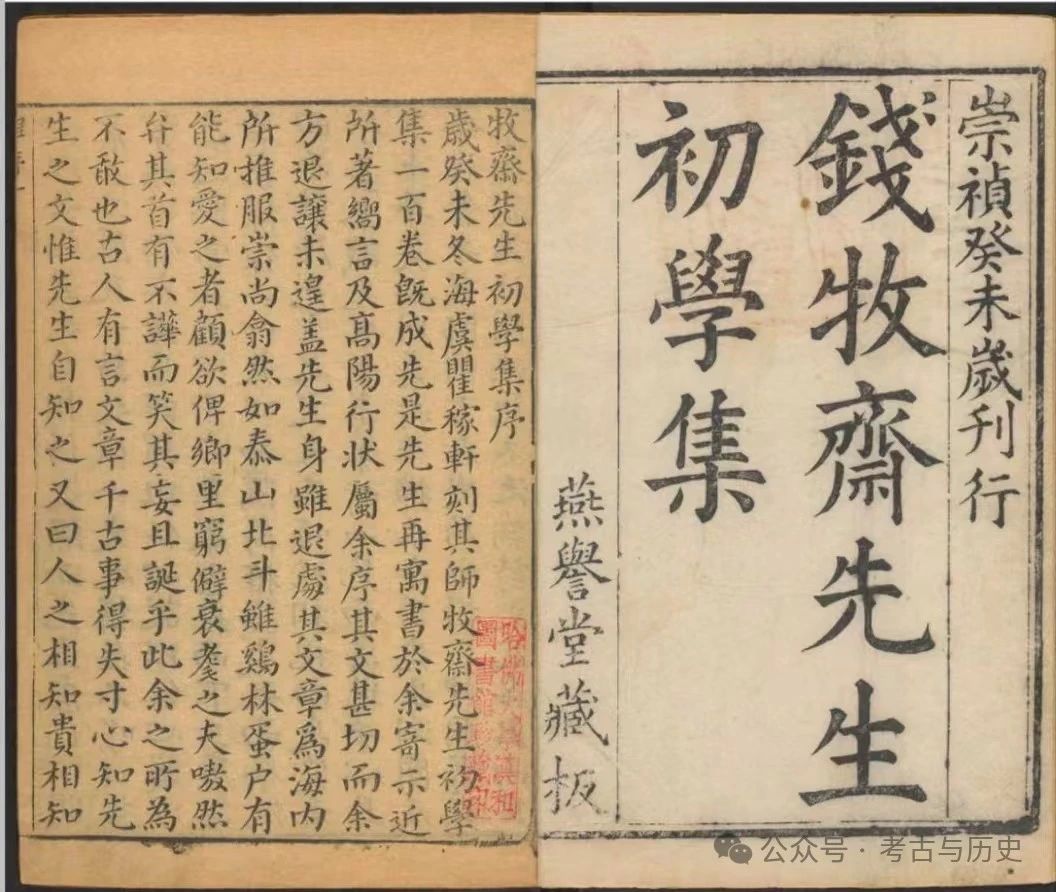 崇禎癸未歲刊行
錢牧齋先生
初學集
燕譽堂藏板
牧齋先生初學集序
歲癸未冬海虞瞿稼軒刻其師牧齋先生初學
集一百卷既成先是先生再寓書於余寄示近
所著嚮言及高陽行狀屬余序其文甚切而余
方退讓未遑盖先生身雖退處其文章爲海内
所推服崇尚翕然如泰山北斗雖鷄林蛋户有
能知愛之者顧欲俾鄉里窮僻衰耄之夫嗷然
弁其首有不譁而笑其妄且誕乎此余之所為
不敢也古人有言文章千古事得失寸心知先
生之文惟先生自知之又曰人之相知貴相知
公众号·考古与历史